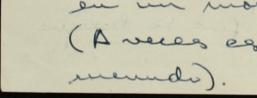 en un mo
(A veces es
menudo).